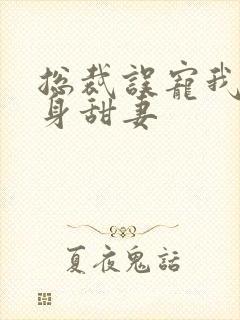 总裁误宠我
身甜妻
夏夜鬼話